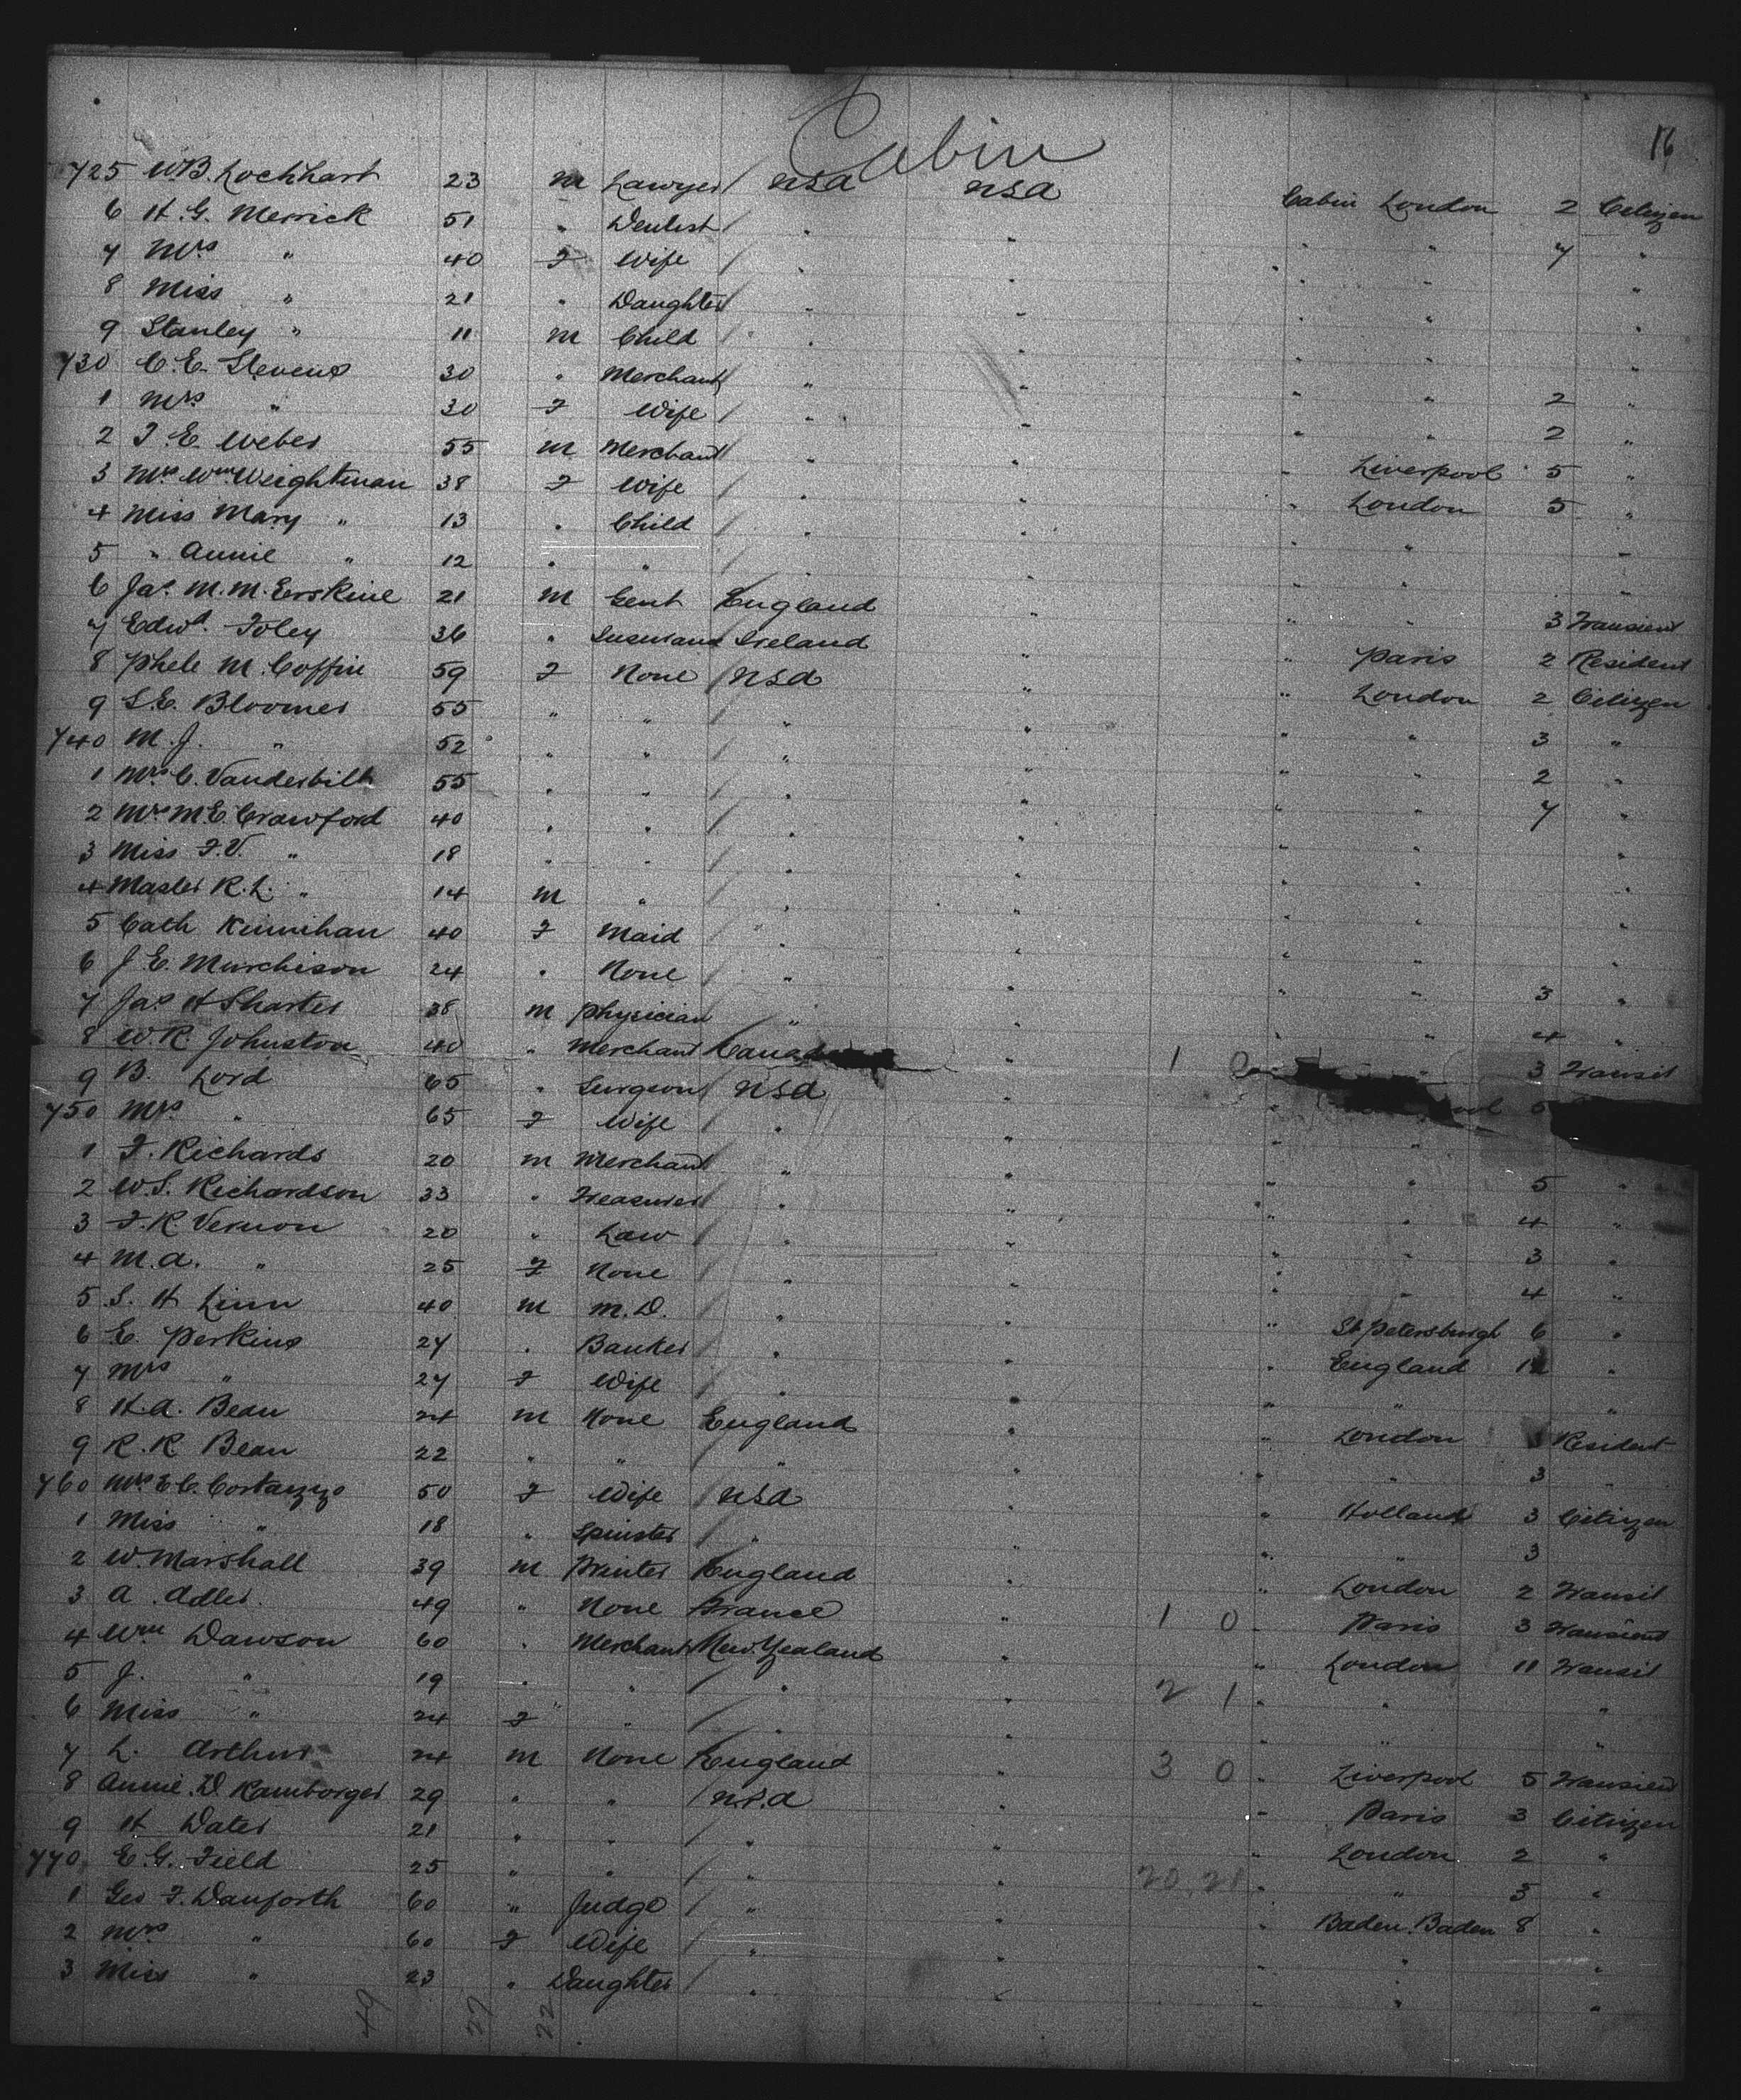 16
Cabin
725 W.B. Lockhart 23 M Lawyer / USA USA Cabin London 2 Citizen
6 H. G. Merrick 51 " Dentist / " " " " 7 "
7 Mrs " 40 F Wife / " " " " "
8 Miss " 21 " Daughter / " " " " "
9 Stanley " 11 M Child / " " " " "
730 C. E. Stevens 30 " Merchant / " " " " 2 "
1 Mrs " 30 F Wife / " " " " 2 "
2 F. E. Weber 55 M Merchant / " " " Liverpool 5 "
3 Mrs Wm Weightman 38 F Wife / " " " London 5 "
4 Miss Mary " 13 " Child / " " " " "
5 " Annie " 12 " " / " " " " "
6 Jas. M. M. Erskine 21 M Gent England " " " 3 Transient
7 Edwd. Foley 36 " Insurance Ireland " " Paris 2 Resident
8 Phele M. Coffin 59 F None / USA " " London 2 Citizen
9 S. E. Bloomer 55 " " / " " " " 3 "
740 M. J. " 52 " " / " " " " 2 "
1 Mrs C. Vanderbilt 55 " " / " " " " 7 "
2 Mrs M E Crawford 40 " " / " " " " "
3 Miss F. V. " 18 " " / " " " " "
4 Master R. L. " 14 M " / " " " " "
5 Cath Kinnihan 40 F Maid / " " " " "
6 J. E. Murchison 24 " None / " " " " 3 "
7 Jas H Sharter 38 M Physician " " " " 4 "
8 W. R. Johnston 40 " Merchant Canada " 1 3 Transit
9 B. Lord 65 " Surgeon / USA " "
750 Mrs " 65 F Wife / " " " "
1 F. Richards 20 M Merchant " " " " 5 "
2 W. S. Richardson 33 " Treasurer / " " " " 4 "
3 F. R. Vernon 20 " Law / " " " " 3 "
4 M. A. " 25 F None / " " " " 4 "
5 S. H Linn 40 M M.D. / " " " St Petersburgh 6 "
6 E. Perkins 27 " Banker / " " " England 12 "
7 Mrs " 27 F Wife / " " " " "
8 H. A. Bean 24 M None England " " London 3 Resident
9 R. R. Bean 22 " " " " " " 3 "
760 Mrs E C. Cortazzo 50 F Wife / USA " " Holland 3 Citizen
1 Miss " 18 " Spinster / " " " " 3
2 W. Marshall 39 M Printer England " " London 2 Transit
3 A. Adler 49 " None France " 1 0 " Paris 3 Transient
4 Wm Dawson 60 " Merchant New Zealand " " London 11 Transit
5 J. " 19 " " " " 2 1 " " "
6 Miss " 24 F " " " " " "
7 L. Arthur 24 M None England " 3 0 " Liverpool 5 Transient
8 Annie D Ramborger 29 " " / U.S.A " " Paris 3 Citizen
9 H Dater 21 " " / " " " London 2 "
770 E. G. Field 25 " " / " " 20,21 " " 5 "
1 Geo F. Danforth 60 " Judge / " " " Baden Baden 8 "
2 Mrs " 60 F Wife / " " " " "
3 Miss " 23 " Daughter / " " " " "
49 27 22